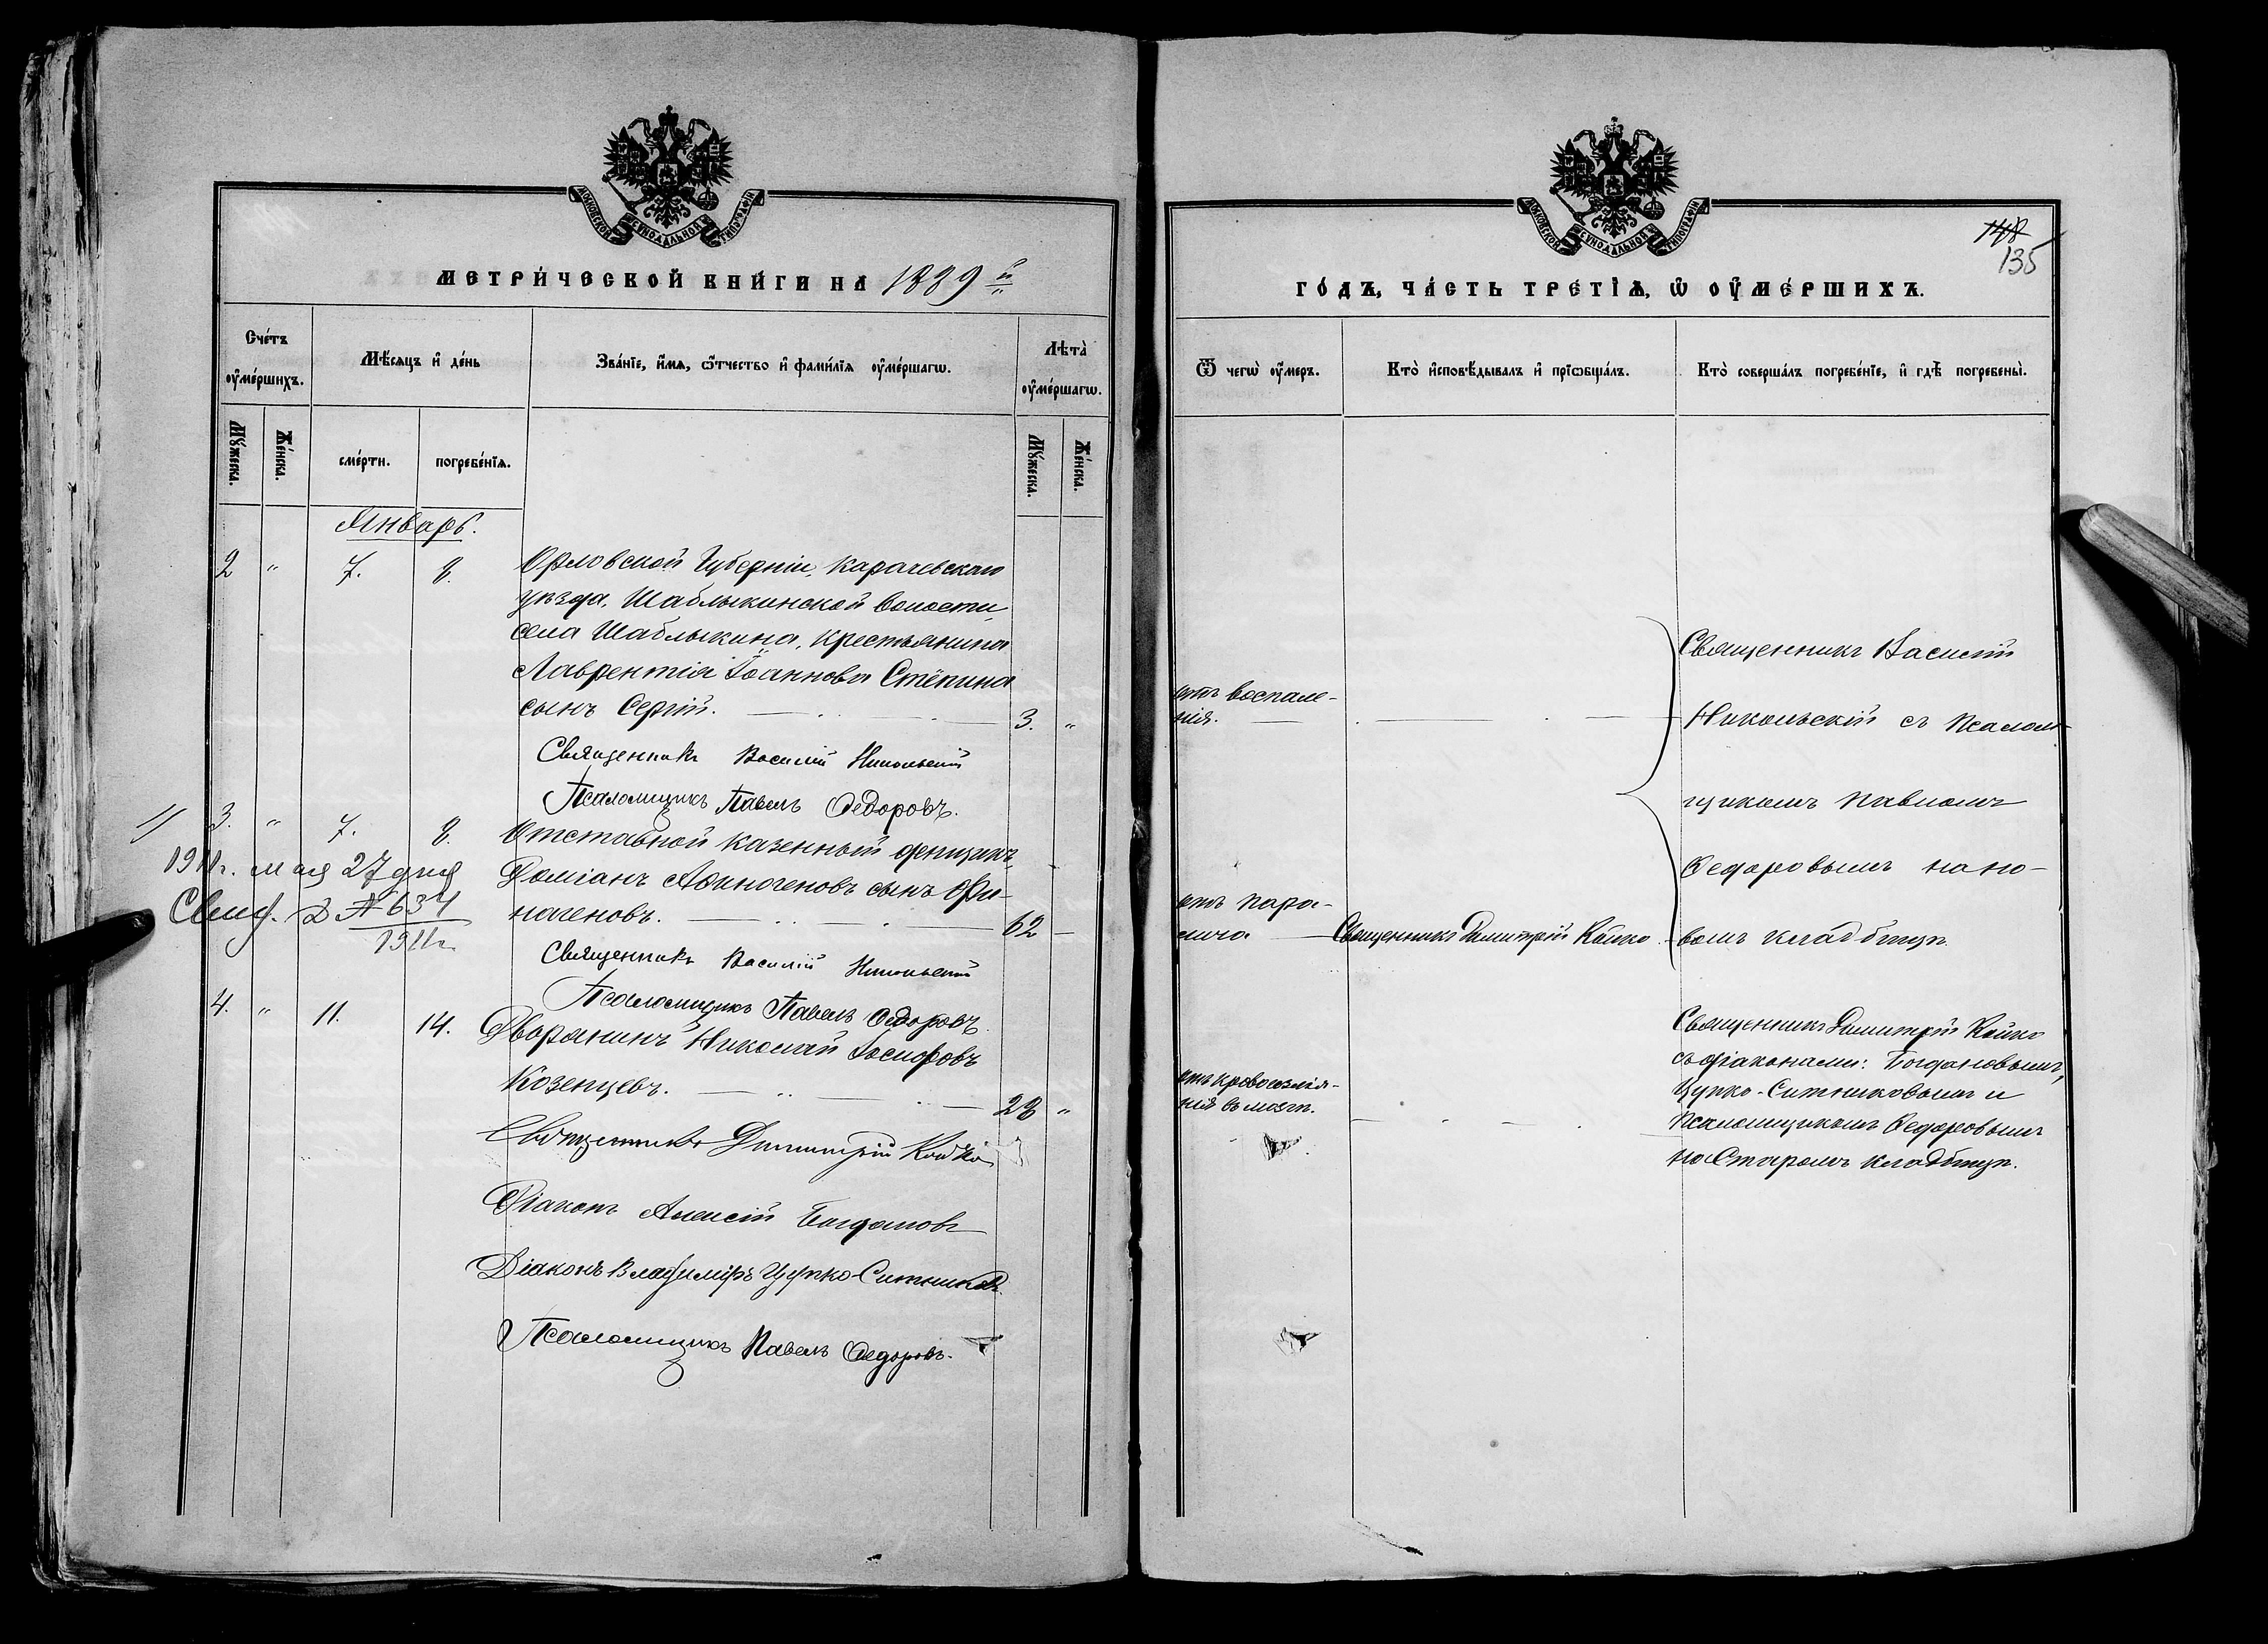 МОСКОВСКОЙ СѴНОДАЛЬНОЙ ТИПОГРАФІИ
МЕТРИ́ЧЕСКОЙ КНИ́ГИ НА 1889 й
Сче́тъ оу҆ме́ршихъ.
Мѣ́сяцъ и҆ де́нь
Зва́нїе, и҆́мѧ, ѻ҆́тчество и҆ фами́лїѧ оу҆ме́ршагѡ.
Лѣта̀ оу҆ме́ршагѡ.
Мꙋ́жеска.
Же́нска.
сме́рти.
погребе́нїѧ.
Мꙋ́жеска.
Же́нска.
Январь.
2 " 7. 8. Орловской Губерніи, Карачевскаго
уѣзда, Шаблыкинской волости,
села Шаблыкина, крестьянина
Лаврентія Іоаннова Стёпина
сынъ Сергій. 3. "
Священникъ Василій Никольскій
Псаломщикъ Павелъ Ѳедоровъ.
1/ 3. " 7. 8. Отставной казенный денщикъ,
1911г. мая 27 дня
Даміанъ Аѳиногеновъ сынъ Афи-
Свид. № 634
1911г.
ногеновъ. 62
Священникъ Василій Никольскій
Псаломщикъ Павелъ Ѳедоровъ
4. " 11. 14. Дворянинъ Николай Іосифовъ
Козенцевъ. 28 "
Священникъ Димитрій Койко
Діаконъ Алексій Богдановъ
Діаконъ Владиміръ Цупко-Ситниковъ
Псаломщикъ Павелъ Ѳедоровъ.
МОСКОВСКОЙ СѴНОДАЛЬНОЙ ТИПОГРАФІИ
148
135
ГО́ДЪ, ЧА́СТЬ ТРЕ́ТІѦ, Ѡ҆ ОУ҆МЕ́РШИХЪ.
Ѿ чегѡ̀ оу҆́меръ.
Кто̀ и҆сповѣ́дывалъ и҆ прїѡбща́лъ.
Кто̀ соверша́лъ погребе́нїе, и҆ гдѣ̀ погребены̀.
отъ воспале-
нія.
Священникъ Василій
Никольскій съ псалом-
щикомъ Павломъ
Ѳедоровымъ на но-
вомъ кладбищѣ.
отъ пара-
лича
Священникъ Димитрій Койко
отъ кровоизлія-
нія въ мозгъ.
Священникъ Димитрій Койко
съ діаконами: Богдановымъ,
Цупко-Ситниковымъ и
псаломщикомъ Ѳедоровымъ
на Старомъ кладбищѣ.